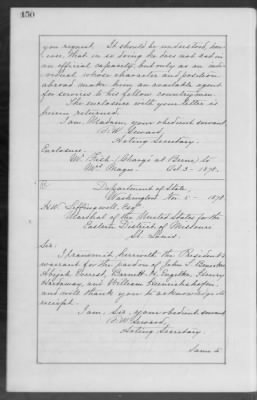 450
you request. It should be understood, how-
ever, that in so doing he does not act in
an official capacity, but only as an indi-
vidual whose character and position
abroad make him an available agent
for services to his fellow countrymen.
The enclosure with your letter is
herein returned.
I am, Madam, your obedient servant
F. W. Seward,
Acting Secretary.
Enclosure:
Mr. Fish (Chargé at Berne) to
Mrs. Oct. 3 - 1878.
Department of State,
Washington Nov. 5 - 1878.
Esq.
Marshal of the United States for the
Eastern District of Missouri
St. Louis.
Sir:
I transmit herewith the President's
warrant for the pardon of John T.
Abijah Barnett H. Henry
and William
and will thank you to acknowledge its
receipt.
I am, Sir, your obedient servant
F. W. Seward,
Acting Secretary.
Same to